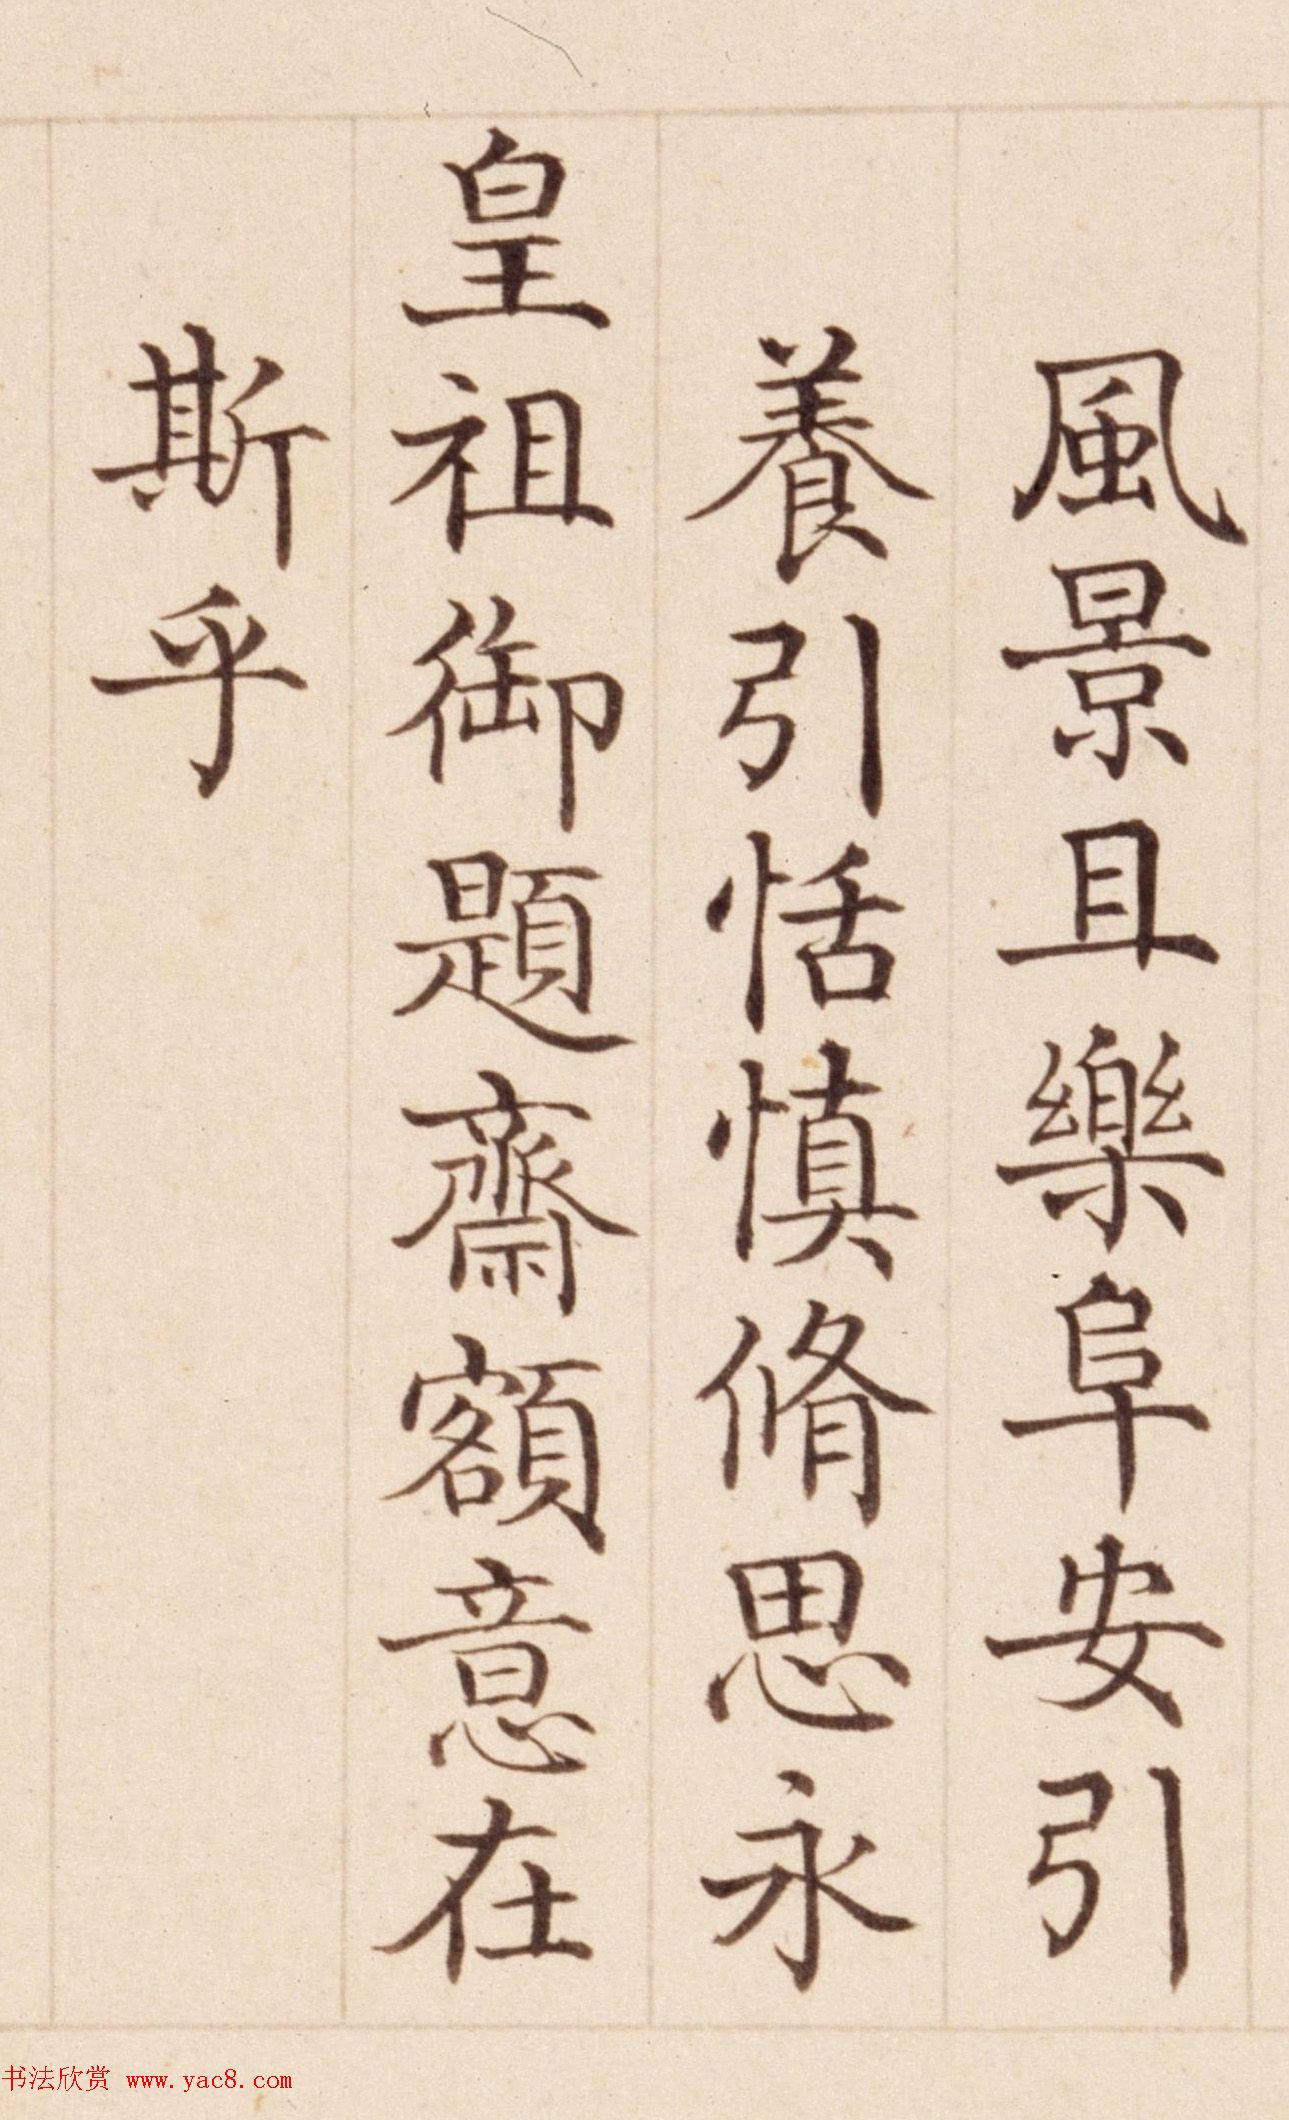 風景且樂阜安引
養引恬慎脩思永
皇祖御題齋額意在
斯乎
书法欣赏 www.yac8.com